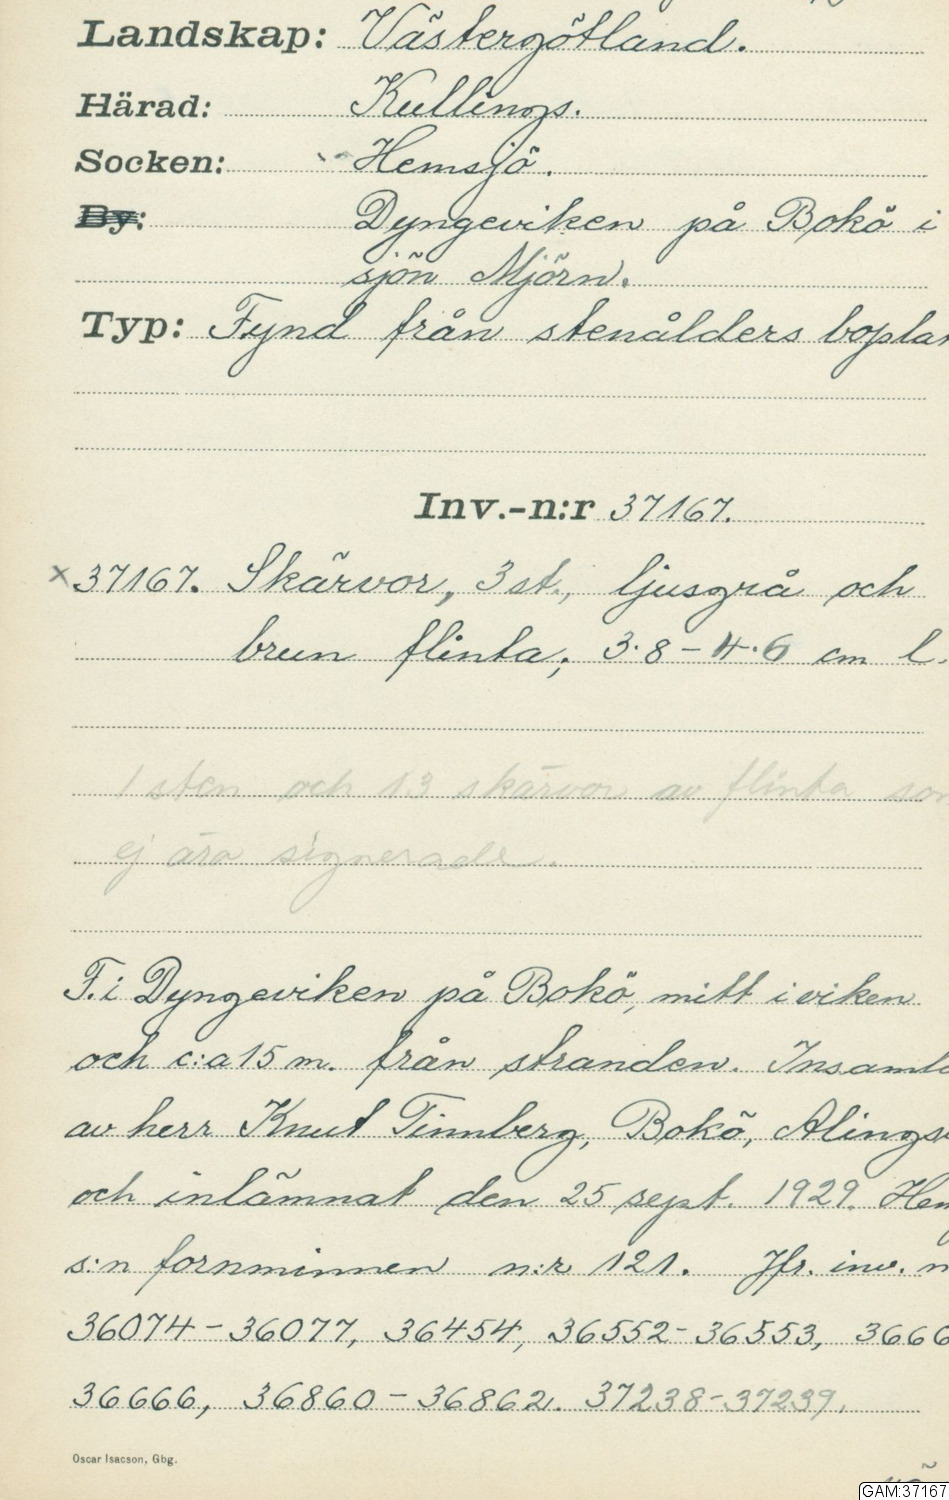 Landskap: Västergötland.
Härad: Kullings.
Socken: Hemsjö.
By: Dyngeviken på Bokö i
sjön Mjörn.
Typ: Fynd från stenålders boplat
Inv.-n:r 37167.
x 37167. Skärvor, 3 st., ljusgrå och
brun flinta; 3.8-4.6 cm l.
1 sten och 13 skärvor av flinta som
ej äro signerade.
F. i Dyngeviken på Bokö, mitt i viken
och c:a 15 m. från stranden. Insaml
av herr Knut Tinnberg, Bokö, Alings
och inlämnat den 25 sept. 1929. Hem
s:n fornminnen n:r 121. Jfr. inv. n
36074-36077, 36454, 36552-36553, 3666
36666, 36860-36862. 37238-37239.
Oscar Isacson, Gbg.
GAM:37167